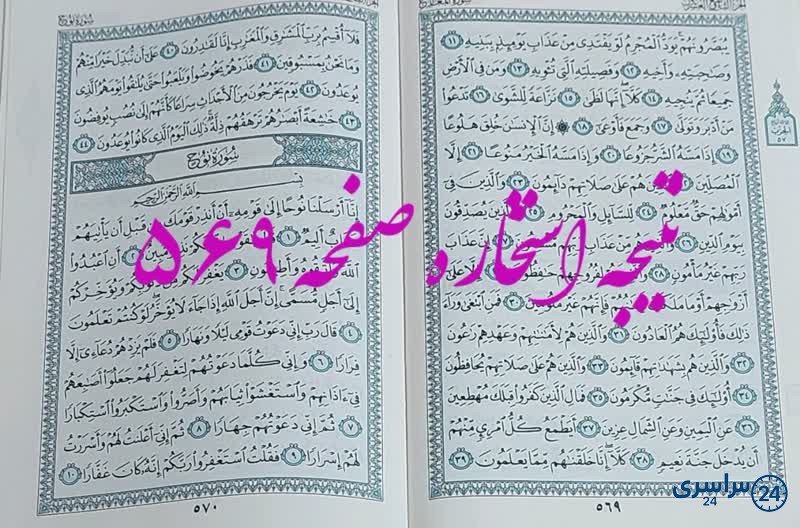 الجزء التاسع والعشرون
سورة المعارج
يُبَصَّرُونَهُمْ ۚ يَوَدُّ الْمُجْرِمُ لَوْ يَفْتَدِي مِنْ عَذَابِ يَوْمِئِذٍ بِبَنِيهِ ١١
وَصَاحِبَتِهِ وَأَخِيهِ ١٢ وَفَصِيلَتِهِ الَّتِي تُؤْوِيهِ ١٣ وَمَن فِي الْأَرْضِ
جَمِيعًا ثُمَّ يُنجِيهِ ١٤ كَلَّا ۖ إِنَّهَا لَظَىٰ ١٥ نَزَّاعَةً لِّلشَّوَىٰ ١٦ تَدْعُوا
مَنْ أَدْبَرَ وَتَوَلَّىٰ ١٧ وَجَمَعَ فَأَوْعَىٰ ١٨ إِنَّ الْإِنسَانَ خُلِقَ هَلُوعًا
١٩ إِذَا مَسَّهُ الشَّرُّ جَزُوعًا ٢٠ وَإِذَا مَسَّهُ الْخَيْرُ مَنُوعًا ٢١ إِلَّا
الْمُصَلِّينَ ٢٢ الَّذِينَ هُمْ عَلَىٰ صَلَاتِهِمْ دَائِمُونَ ٢٣ وَالَّذِينَ فِي
أَمْوَالِهِمْ حَقٌّ مَّعْلُومٌ ٢٤ لِّلسَّائِلِ وَالْمَحْرُومِ ٢٥ وَالَّذِينَ يُصَدِّقُونَ
بِيَوْمِ الدِّينِ ٢٦ وَالَّذِينَ هُم مِّنْ عَذَابِ رَبِّهِم مُّشْفِقُونَ ٢٧ إِنَّ عَذَابَ
رَبِّهِمْ غَيْرُ مَأْمُونٍ ٢٨ وَالَّذِينَ هُمْ لِفُرُوجِهِمْ حَافِظُونَ ٢٩ إِلَّا عَلَىٰ
أَزْوَاجِهِمْ أَوْ مَا مَلَكَتْ أَيْمَانُهُمْ فَإِنَّهُمْ غَيْرُ مَلُومِينَ ٣٠ فَمَنِ ابْتَغَىٰ وَرَاءَ
ذَٰلِكَ فَأُولَٰئِكَ هُمُ الْعَادُونَ ٣١ وَالَّذِينَ هُمْ لِأَمَانَاتِهِمْ وَعَهْدِهِمْ رَاعُونَ
٣٢ وَالَّذِينَ هُم بِشَهَادَاتِهِمْ قَائِمُونَ ٣٣ وَالَّذِينَ هُمْ عَلَىٰ صَلَاتِهِمْ يُحَافِظُونَ
٣٤ أُولَٰئِكَ فِي جَنَّاتٍ مُّكْرَمُونَ ٣٥ فَمَالِ الَّذِينَ كَفَرُوا قِبَلَكَ مُهْطِعِينَ
٣٦ عَنِ الْيَمِينِ وَعَنِ الشِّمَالِ عِزِينَ ٣٧ أَيَطْمَعُ كُلُّ امْرِئٍ مِّنْهُمْ
أَن يُدْخَلَ جَنَّةَ نَعِيمٍ ٣٨ كَلَّا ۖ إِنَّا خَلَقْنَاهُم مِّمَّا يَعْلَمُونَ ٣٩
٥٦٩
الحزب
٥٧
سورة نوح
فَلَا أُقْسِمُ بِرَبِّ الْمَشَارِقِ وَالْمَغَارِبِ إِنَّا لَقَادِرُونَ ٤٠ عَلَىٰ أَن نُّبَدِّلَ خَيْرًا مِّنْهُمْ
وَمَا نَحْنُ بِمَسْبُوقِينَ ٤١ فَذَرْهُمْ يَخُوضُوا وَيَلْعَبُوا حَتَّىٰ يُلَاقُوا يَوْمَهُمُ الَّذِي
يُوعَدُونَ ٤٢ يَوْمَ يَخْرُجُونَ مِنَ الْأَجْدَاثِ سِرَاعًا كَأَنَّهُمْ إِلَىٰ نُصُبٍ يُوفِضُونَ
٤٣ خَاشِعَةً أَبْصَارُهُمْ تَرْهَقُهُمْ ذِلَّةٌ ۚ ذَٰلِكَ الْيَوْمُ الَّذِي كَانُوا يُوعَدُونَ ٤٤
سُورَةُ نُوحٍ
بِسْمِ اللَّهِ الرَّحْمَٰنِ الرَّحِيمِ
إِنَّا أَرْسَلْنَا نُوحًا إِلَىٰ قَوْمِهِ أَنْ أَنذِرْ قَوْمَكَ مِن قَبْلِ أَن يَأْتِيَهُمْ
عَذَابٌ أَلِيمٌ ١ قَالَ يَا قَوْمِ إِنِّي لَكُمْ نَذِيرٌ مُّبِينٌ ٢ أَنِ اعْبُدُوا
اللَّهَ وَاتَّقُوهُ وَأَطِيعُونِ ٣ يَغْفِرْ لَكُم مِّن ذُنُوبِكُمْ وَيُؤَخِّرْكُمْ
إِلَىٰ أَجَلٍ مُّسَمًّى ۚ إِنَّ أَجَلَ اللَّهِ إِذَا جَاءَ لَا يُؤَخَّرُ ۖ لَوْ كُنتُمْ تَعْلَمُونَ
٤ قَالَ رَبِّ إِنِّي دَعَوْتُ قَوْمِي لَيْلًا وَنَهَارًا ٥ فَلَمْ يَزِدْهُمْ دُعَائِي إِلَّا
فِرَارًا ٦ وَإِنِّي كُلَّمَا دَعَوْتُهُمْ لِتَغْفِرَ لَهُمْ جَعَلُوا أَصَابِعَهُمْ
فِي آذَانِهِمْ وَاسْتَغْشَوْا ثِيَابَهُمْ وَأَصَرُّوا وَاسْتَكْبَرُوا اسْتِكْبَارًا
٧ ثُمَّ إِنِّي دَعَوْتُهُمْ جِهَارًا ٨ ثُمَّ إِنِّي أَعْلَنتُ لَهُمْ وَأَسْرَرْتُ
لَهُمْ إِسْرَارًا ٩ فَقُلْتُ اسْتَغْفِرُوا رَبَّكُمْ إِنَّهُ كَانَ غَفَّارًا ١٠
٥٧٠
نتیجه استخاره صفحه ۵۶۹
سراسری 24
24